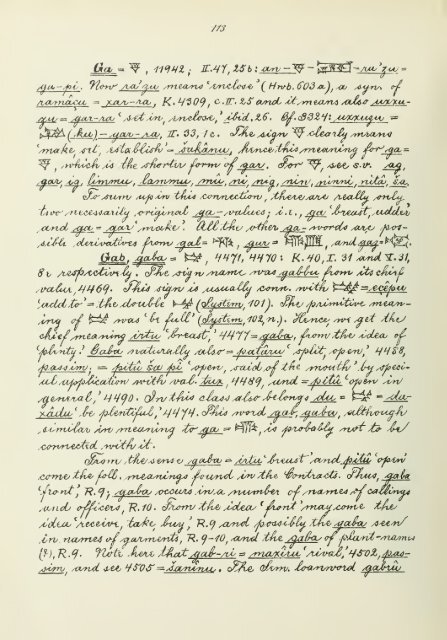 113
Ga = 𒐼, 11942; II.47, 25b: an - 𒐼 - -ra'zu =
ga-pi. Now ra'zu means 'inclose' (Hwb. 603a), a syn. of
ramâçu = xar-ra, K.4309, c.II.25 and it means also uxxu-
zu = gar-ra 'set in, inclose,' ibid, 26. Cf. 3324: uxxuzu =
(ku)-gar-ra, II.33, 1c. The sign 𒐼 clearly means
'make, set, establish' = šakânu, hence this meaning for ga =
𒐼, which is the shorter form of gar. For 𒐼, see s.v. ag,
gar, ig, limmu, lammu, mû, ni, nig, nin, ninni, nitâ, ša.
To sum up in this connection, there are really only
two necessarily original ga-values; i.e., ga 'breast, udder'
and ga = gar 'make.' All the other ga-words are pos-
sible derivatives from gal = , gur = , and gaz = .
Gab, gaba = , 4471, 4470: K.40, I.31 and V.31,
8c respectively. The sign name was gabbu from its chief
value, 4469. This sign is usually conn. with = eçêpu
'add to' = the double (System, 101). The primitive mean-
ing of was 'be full' (System, 102, n.). Hence we get the
chief meaning irtu 'breast,' 4477 = gaba, from the idea of
'plenty.' Gaba naturally also = paṭâru 'split, open,' 4488,
passim; = pitû ša pî 'open, said of the mouth' by speci-
al application with val. tux, 4489, and = pitû 'open in
general,' 4490. In this class also belongs du = = da-
xâdu 'be plentiful,' 4474. This word gab, gaba, although
similar in meaning to ga = , is probably not to be
connected with it.
From the sense gaba = irtu 'breast' and pitû 'open'
come the foll. meanings found in the Contracts. Thus, gaba
'front,' R.9; gaba occurs in a number of names of callings
and officers, R.10. From the idea 'front' may come the
idea 'receive, take, buy,' R.9 and possibly the gaba seen
in names of garments, R.9-10, and the gaba of plant-names
(?), R.9. Note here that gab-ri = maxîru 'rival,' 4502, pas-
sim, and see 4505 = šanînu. The Sem. loanword gabrû